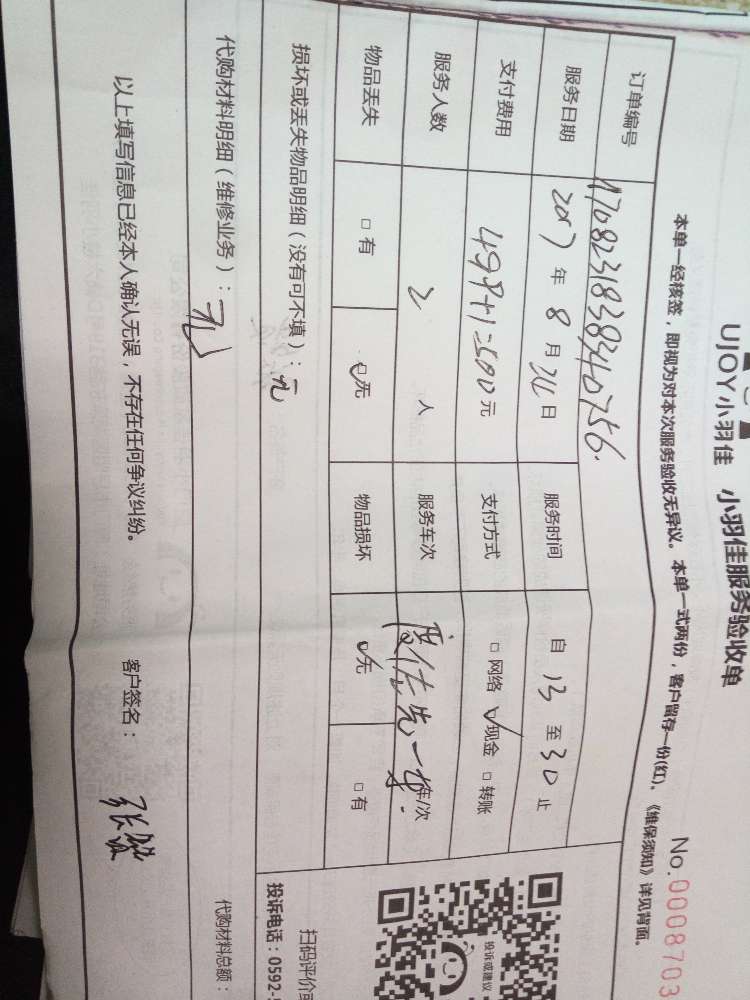 UJOY小羽佳 小羽佳服务验收单
No.0008703
本单一经核签，即视为对本次服务验收无异议。本单一式两份，客户留存一份(红)、《维保须知》详见背面。
订单编号 1708231838340756.
服务日期 2017年 8月 日 服务时间 自 13 至 30 止
支付费用 499+1=500元 支付方式 □ 网络 ☑现金 □ 转账
服务人数 2 人 服务车次 车/次
物品丢失 □ 有 ☑无 物品损坏 ☑无 □ 有
损坏或丢失物品明细（没有可不填）：无
代购材料明细（维修业务）：无
代购材料总额：
以上填写信息已经本人确认无误，不存在任何争议纠纷。 客户签名：
投诉或建议
扫码评价
投诉电话：0592-